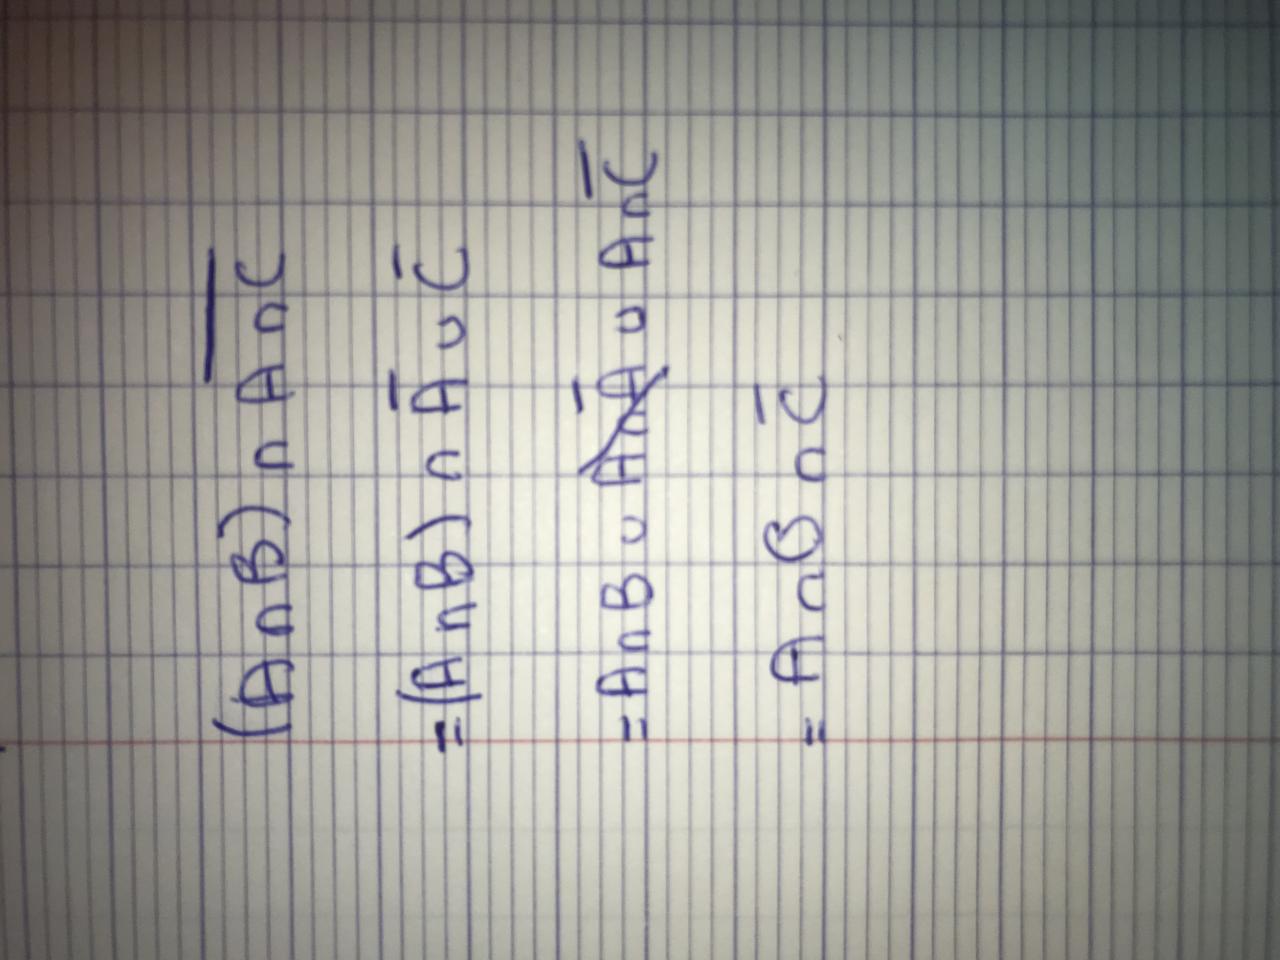 (A∩B) ∩ A̅∩̅C̅
=(A∩B) ∩ A̅ ∪ C̅
=A∩B ∪ A∩A̅ ∪ A∩C̅
= A∩B∩C̅